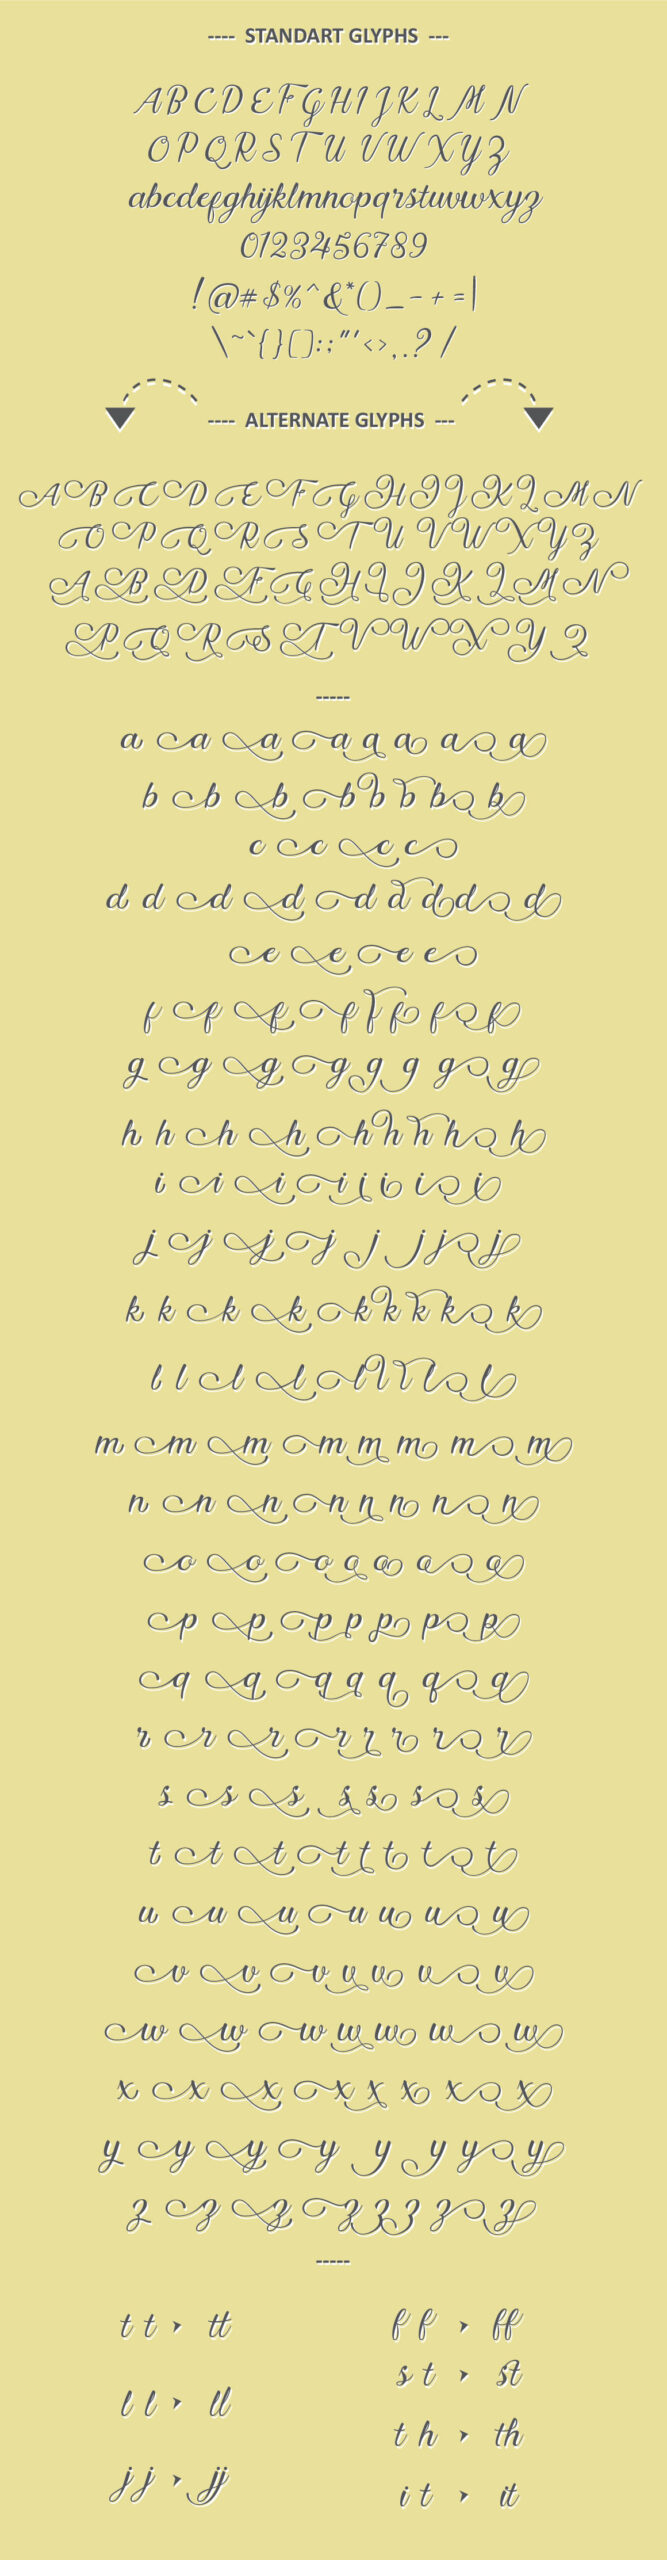 ---- STANDART GLYPHS ---
A B C D E F G H I J K L M N
O P Q R S T U V W X Y Z
abcdefghijklmnopqrstuvwxyz
0123456789
! @ # $ % ^ & * ( ) _ - + = |
\ ~ ` { } [ ] : ; " ' < > , . ? /
---- ALTERNATE GLYPHS ---
A B C D E F G H I J K L M N
O P Q R S T U V W X Y Z
A B D F G H I J K L M N
P Q R S T V W X Y Z
-----
a a a a a a a a
b b b b b b b b
c c c c
d d d d d d d d
e e e e
f f f f f f f f
g g g g g g g g
h h h h h h h h
i i i i i i i i
j j j j j j j j
k k k k k k k k
l l l l l l l l
m m m m m m m m
n n n n n n n n
o o o o o o o
p p p p p p p
q q q q q q q
r r r r r r r r
s s s s s s s
t t t t t t t t
u u u u u u u
v v v v v v v
w w w w w w w
x x x x x x x x
y y y y y y y y
z z z z z z z z
-----
t t ➤ tt
f f ➤ ff
s t ➤ st
l l ➤ ll
t h ➤ th
j j ➤ jj
i t ➤ it